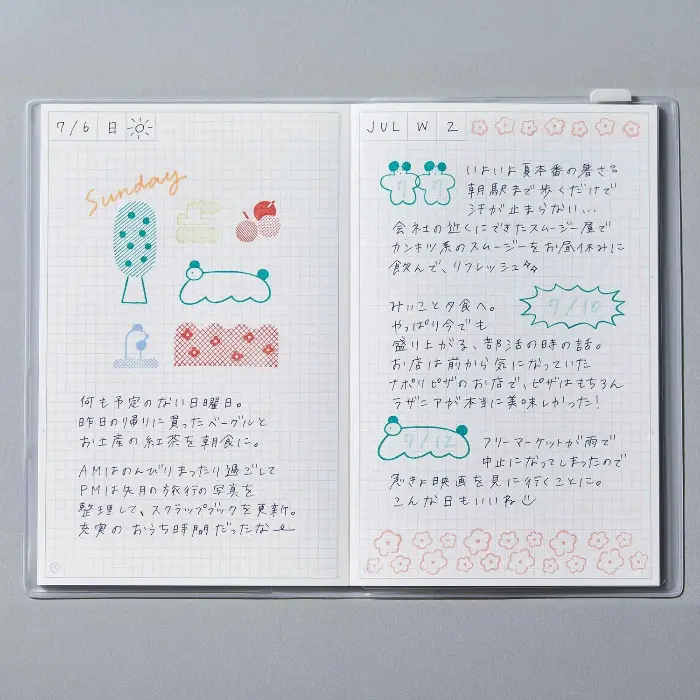 7/6 日
Sunday
何も予定のない日曜日。
昨日の帰りに買ったベーグルと
お土産の紅茶を朝食に。
AMはのんびりまったり過ごして
PMは先月の旅行の写真を
整理して、スクラップブックを更新。
充実のおうち時間だったな
JUL W 2
7 7
いよいよ夏本番の暑さ。
朝駅まで歩くだけで
汗が止まらない...
会社の近くにできたスムージー屋で
カンキツ系のスムージーをお昼休みに
飲んで、リフレッシュ
7/10
みいこと夕食へ。
やっぱり今でも
盛り上がる、部活の時の話。
お店は前から気になっていた
ナポリピザのお店で、ピザはもちろん
ラザニアが本当に美味しかった!
7/12
フリーマーケットが雨で
中止になってしまったので
急きょ映画を見に行くことに。
こんな日もいいね